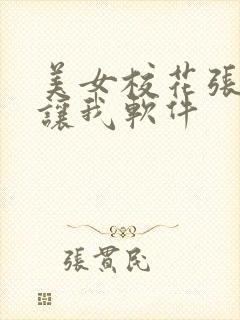 美女校花張
讓我軟件
張貫民